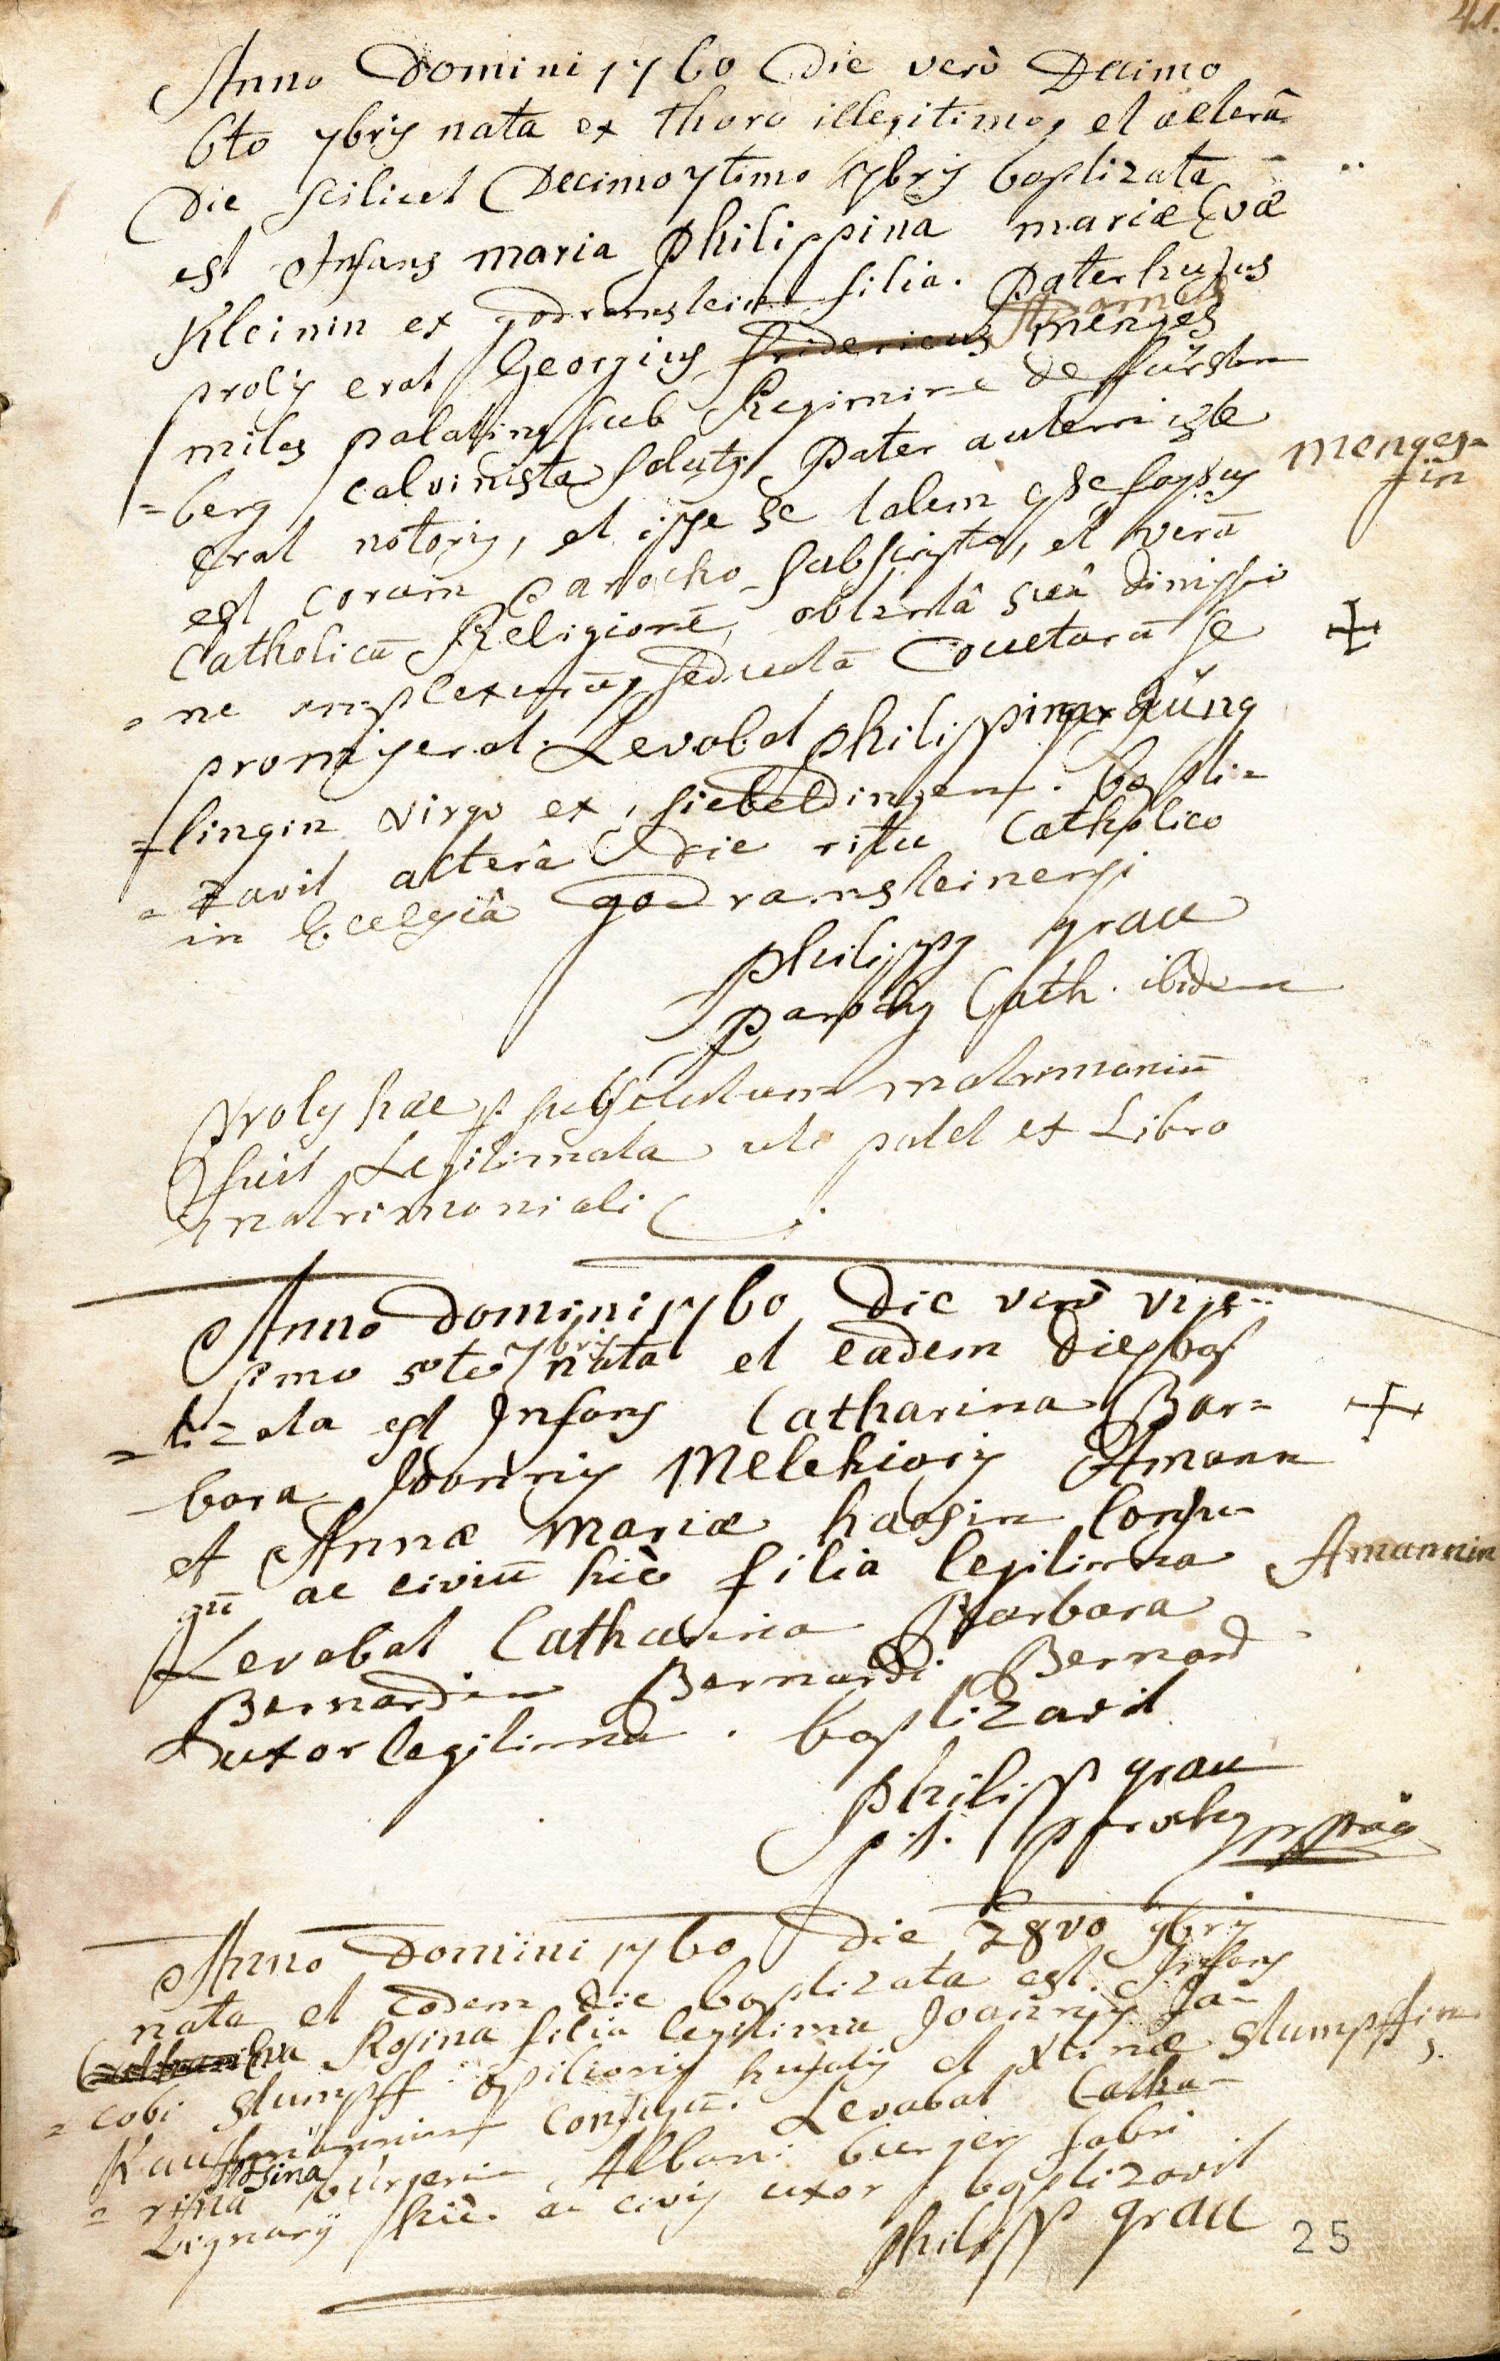 41.
Anno Domini 1760 Die verò Decimo
6to 7bris nata ex thoro illegitimo, et alterâ
Die scilicet Decimo 7timo 7bris baptizata
est Infans maria Philippina mariæ Evæ
Kleinin ex godramstein filia. Pater hujus
prolis erat Georgius Fridericus menges
miles palatinus sub Regimine de fürsten
=berg calvinista solutus. Pater autem iste
menges=
in
erat notorius, et ipse se talem esse fassus
est coram Parocho subscripto, et verâ
Catholicâ Religione, obtentâ suâ dimissio
=ne amplexurum, seductâ
se
promiserat. Levabat Philippina güng
=lingin virgo ex siebeldingen. bapti=
=zavit alterâ Die ritu Catholico
in Ecclesiâ godramsteinensi
Philippus grau
parochus Cath. ibidem
Proles hæc p subsecutum matrimoniū
fuit Legitimata uti patet ex Libro
matrimoniali
Anno Domini 1760 Die verò vige=
simo 5to 7bris nata et eadem die bap
=tizata est Infans Catharina Bar=
bara Joannis Melchioris Amann
et Annæ Mariæ haasin conju=
gū ac civiū hic filia legitima
Amannin
Levabat Catharina Barbara
Bernardin Bernardi Bernard
uxor legitima. baptizavit
Philipp grau
p.t. parochus mppria
Anno Domini 1760 Die 28vo 7bris
nata et eodem die baptizata est Infans
Rosina filia legitima Joannis Ja=
=cobi Stumpff opilionis hujatis et Xtinæ
Stumpffin
Kaufmännin conjugū. Levabat Catha=
=rina Rosina bürgerin Albani bürger fabri
Lignarij hic. ac civis uxor, baptizavit
Philipp grau
25